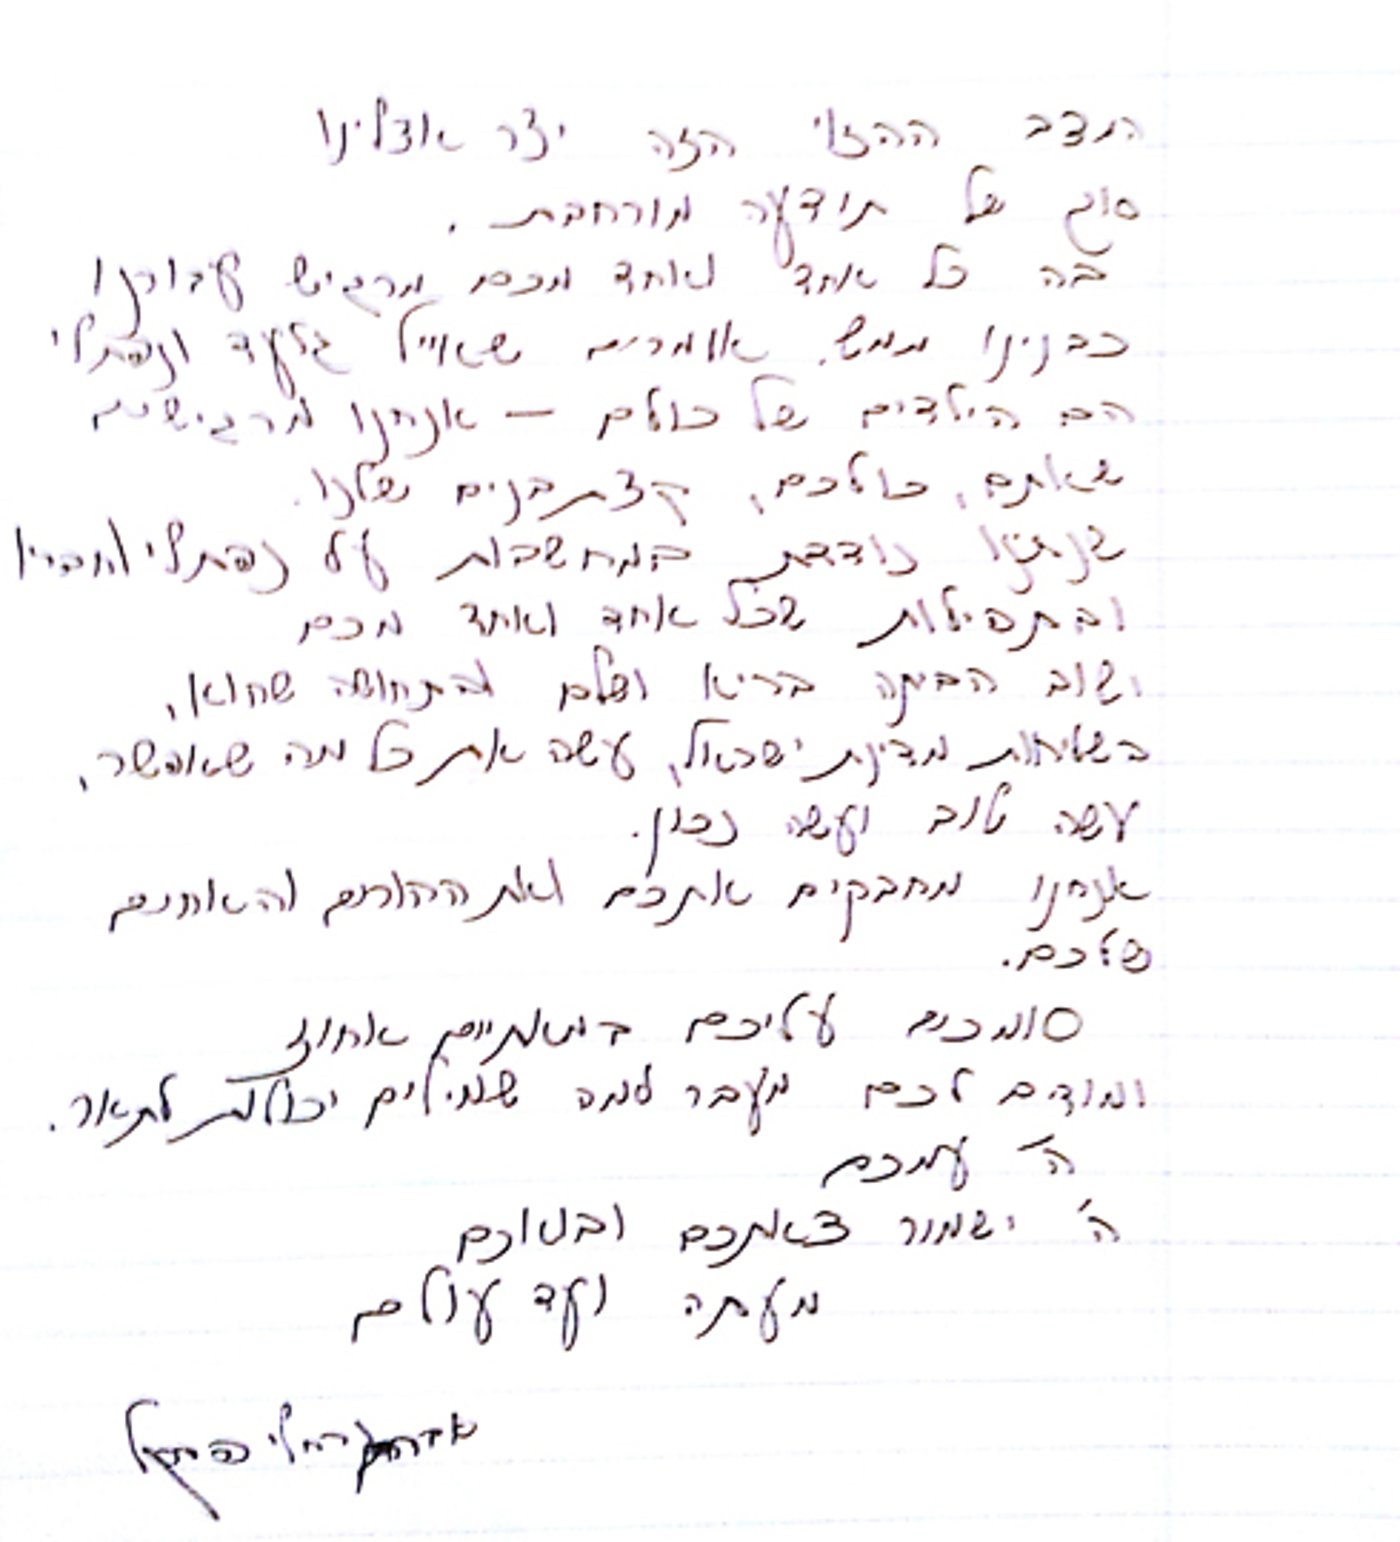 המצב ההזוי הזה יצר אצלינו
סוג של תודעה מורחבת.
בה כל אחד ואחד מכם מרגיש עבורנו
כבנינו ממש. אומרים שאייל גלעד ונפתלי
הם הילדים של כולם – אנחנו מרגישים
שאתם, כולכם, קצת בנים שלנו.
שנתנו נודדת במחשבות על נפתלי וחבריו
ובתפילות שכל אחד ואחד מכם
ישוב הביתה בריא ושלם ובתחושה שהוא,
בשליחות מדינת ישראל, עשה את כל מה שאפשר,
עשה טוב ועשה נכון.
אנחנו מחבקים אתכם ואת ההורים והאחים
שלכם.
סומכים עליכם במאתיים אחוז
ומודים לכם מעבר למה שמילים יכולות לתאר.
ה' עמכם
ה' ישמור צאתכם ובואכם
מעתה ועד עולם
רחלי פרנקל